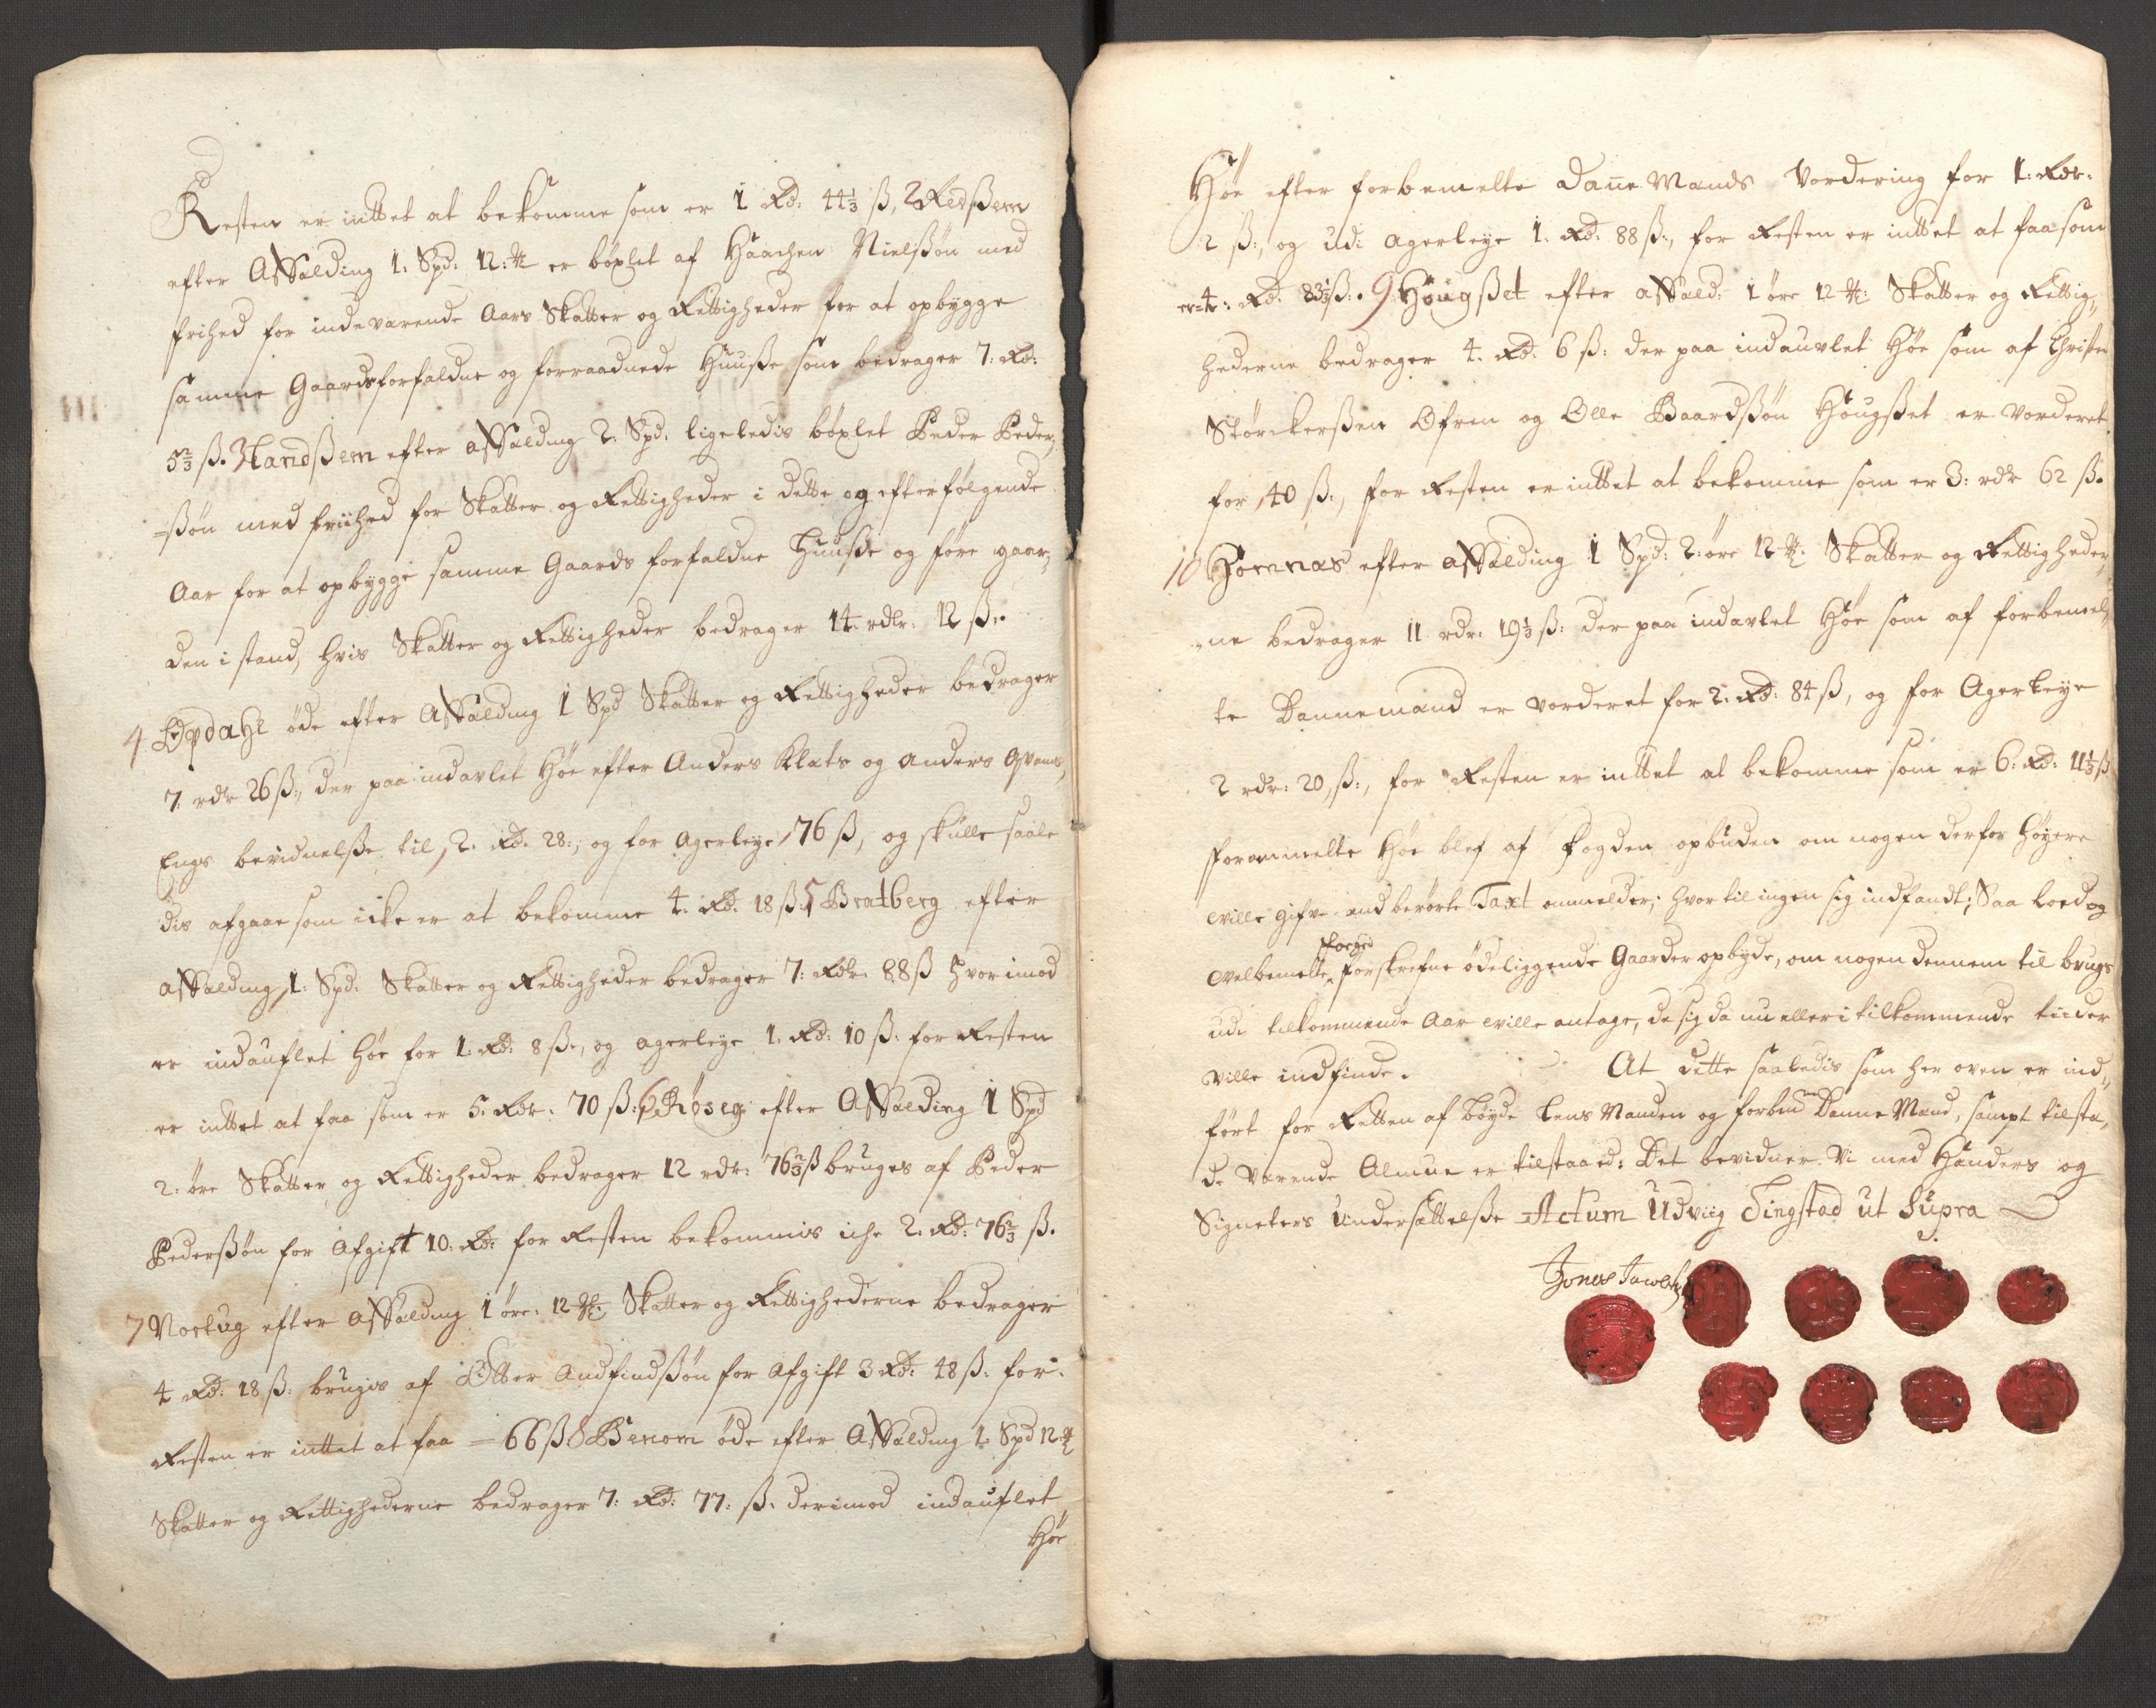 Resten er inttet at bekomme som er 1 Rd: 44⅓ ß, 2 Redßem
efter Affælding 1: Spd: 12: ℳ er böxlet af Haachen Nielßøn med
frihed for indeværende Aars Skatter og Rettigheder for at opbygge
samme Gaards forfaldne og forraadnede Huuße som bedrager 7: Rd:
5⅔ ß. 3 Handßem efter affælding 2: Spd: ligeledis böxlet Peder Peder,
=ßøn med friihed for Skatter og Rettigheder i dette og efterfølgende
Aar for at opbygge samme Gaards forfaldne Huuße og føre gaar,
den i stand, hvis Skatter og Rettigheder bedrager 14: rdlr: 12 ß:.
4 Opdahl öde efter Affælding 1 Spd Skatter og Rettigheder bedrager
7: rdr 26 ß:, der paa indavlet Høe efter Anders Klæts og Anders Qvams,
Engs bevidnelße til 2. Rd. 28:, og for agerleye 76 ß, og skulle saale
dis afgaae som icke er at bekomme 4. Rd. 18 ß. 5 Bratberg efter
affælding 1: Spd: Skatter og Rettigheder bedrager 7: Rdr. 88 ß hvorimod
er indauflet høe for 1: Rd: 8 ß:, og agerleye 1. Rd: 10 ß: for Resten
er inttet at faa som er 5. Rdr: 70 ß: 6 Røseg efter Affælding 1 Spd
2: øre Skatter og Rettigheder bedrager 12 rdr: 76⅔ ß bruges af Peder
Pederßøn for Afgift 10: Rd: for Resten bekommis iche 2. Rd: 76⅔ ß.
7 Vorlug efter Affælding 1 øre: 12 ℳ: Skatter og Rettighederne bedrager
4 Rd: 18 ß: brugis af Otter Andfindßøn for Afgift 3 Rd: 48 ß: for
Resten er inttet at faa = 66 ß 8 Benom öde efter Affælding 1 Spd 12 ℳ
Skatter og Rettighederne bedrager 7: Rd: 77: ß. derimod indauflet
Høe
Høe efter forbemelte Danne Mands Vordering for 1: Rdr.
2 ß:, og udi agerleye 1. Rd: 88 ß:, for Resten er inttet at faa som
er 4: Rd: 83⅓ ß:. 9 Høugßet efter affæld: 1 øre 12 ℳ: Skatter og Rettig,,
hederne bedrager 4. Rd: 6 ß: der paa indauvlet Høe som af Christen
Størckerßen Øfren og Olle Baardßøn Høugßet er Vorderet
for 40 ß:, for Resten er inttet at bekomme som er 3: rdr 62 ß.
10 Hømnæs efter affælding 1 Spd: 2: øre 12 ℳ. Skatter og Rettigheder,,
ne bedrager 11 rdr: 19⅓ ß: der paa indavlet Høe som af forbemel,
te Dannemænd er vorderet for 2: Rd: 84 ß, og for Agerleye
2 rdr: 20, ß:, for Resten er inttet at bekomme som er 6: Rd: 11⅓ ß
forommelte Høe blef af fogden opbuden om nogen derfor høyere
ville gifve end berørte Taxt ommelder; hvortil ingen sig indfandt; Saa loed og
velbemelte foged forskrefne ödeliggende Gaarder opbyde, om nogen dennem til brugs
udi tilkommende Aar ville antage, de sig da nu eller i tilkommende tiider
ville indfinde. At dette saaledis som her oven er ind,,
ført for Retten af bøyde Lens Manden og forbem Danne Mænd, sampt tilstæ,
de værende Almue er tilstaaed: Det bevidner Vi med Hænders og
Signeters Undersættelße Actum Udviig Tingstad ut Supra
Jones Jacobs